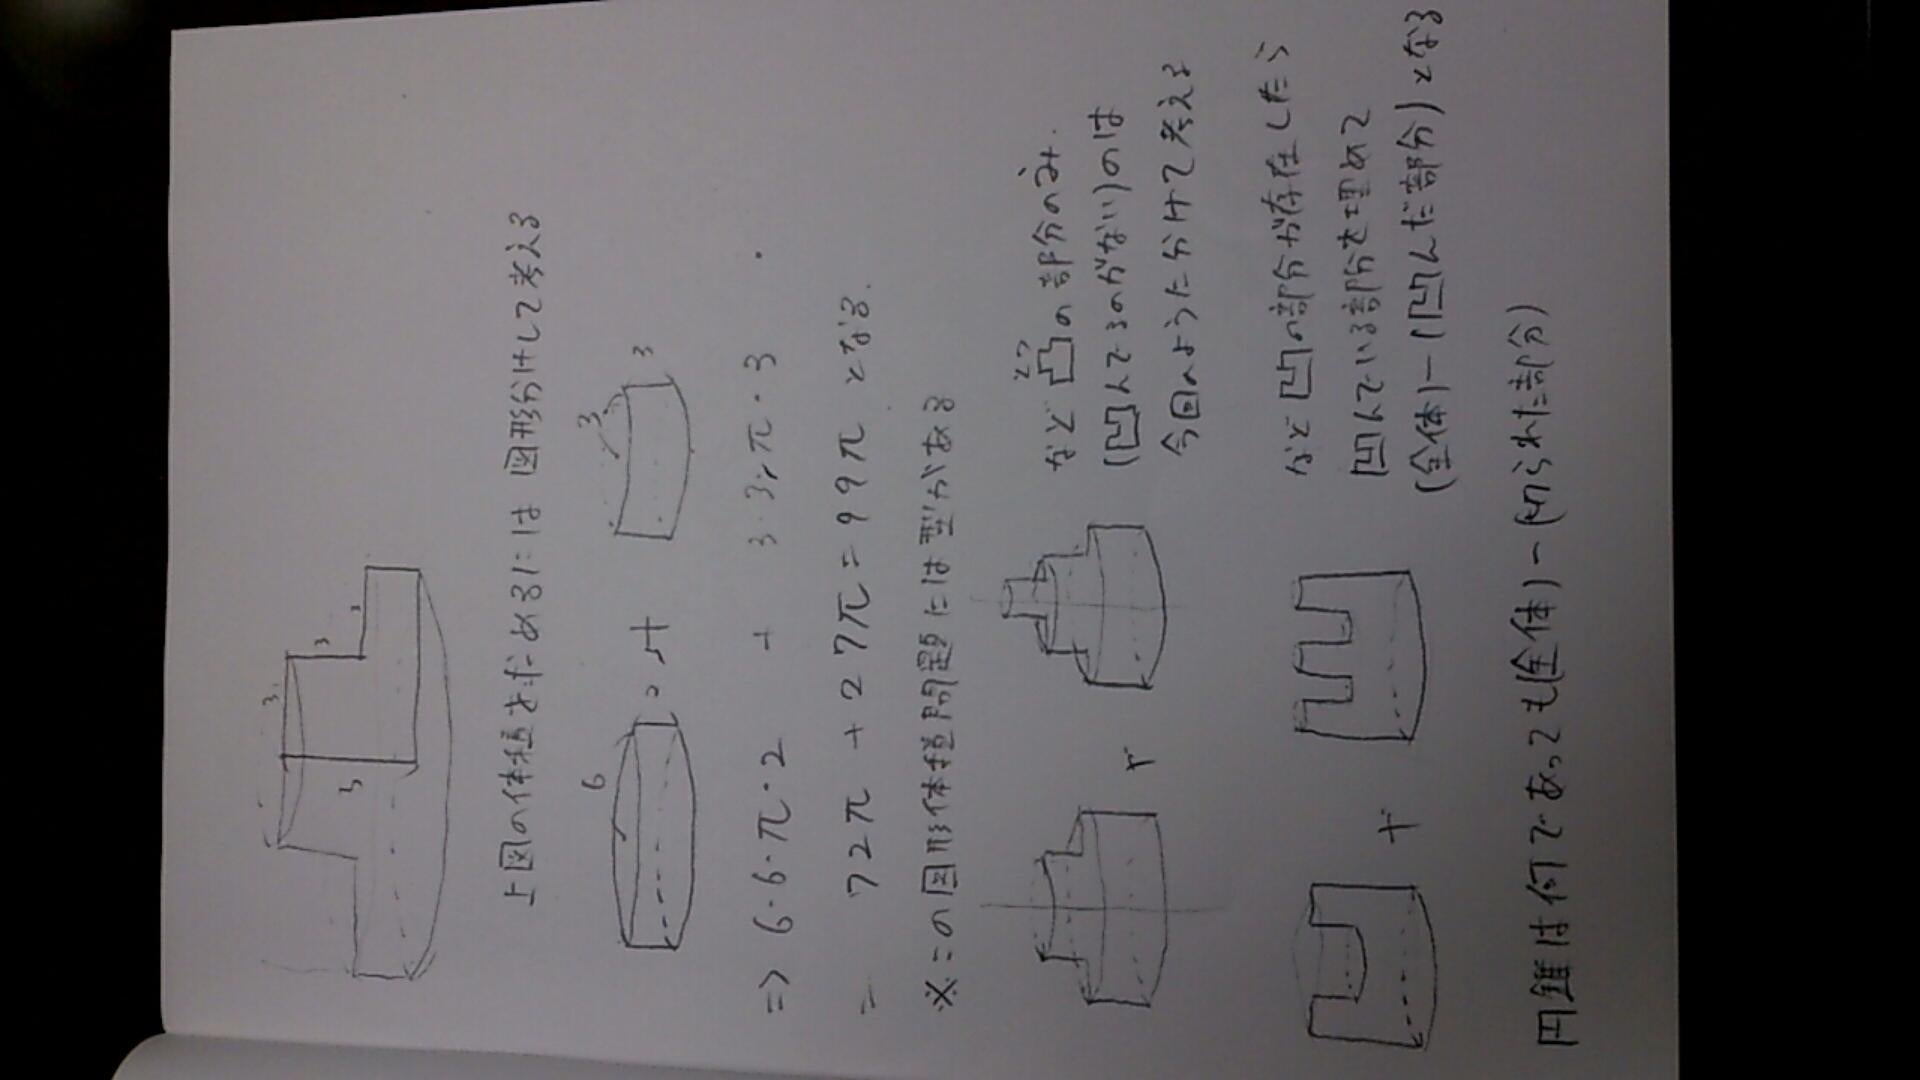 3
3
3
3
上図の体積を求めるには図形分けして考える
6
2
+
3
3
=> 6・6・π・2 + 3・3・π・3
= 72π + 27π = 99π となる.
※この図形体積問題には型がある
や
など凸の部分のみ.
とつ
(凹んでるのがない)のは
今回のように分けて考える
や
など凹の部分が存在したら
凹んでいる部分を埋めて
(全体)-(凹んだ部分)となる
円錐は何であっても(全体)-(切られた部分)